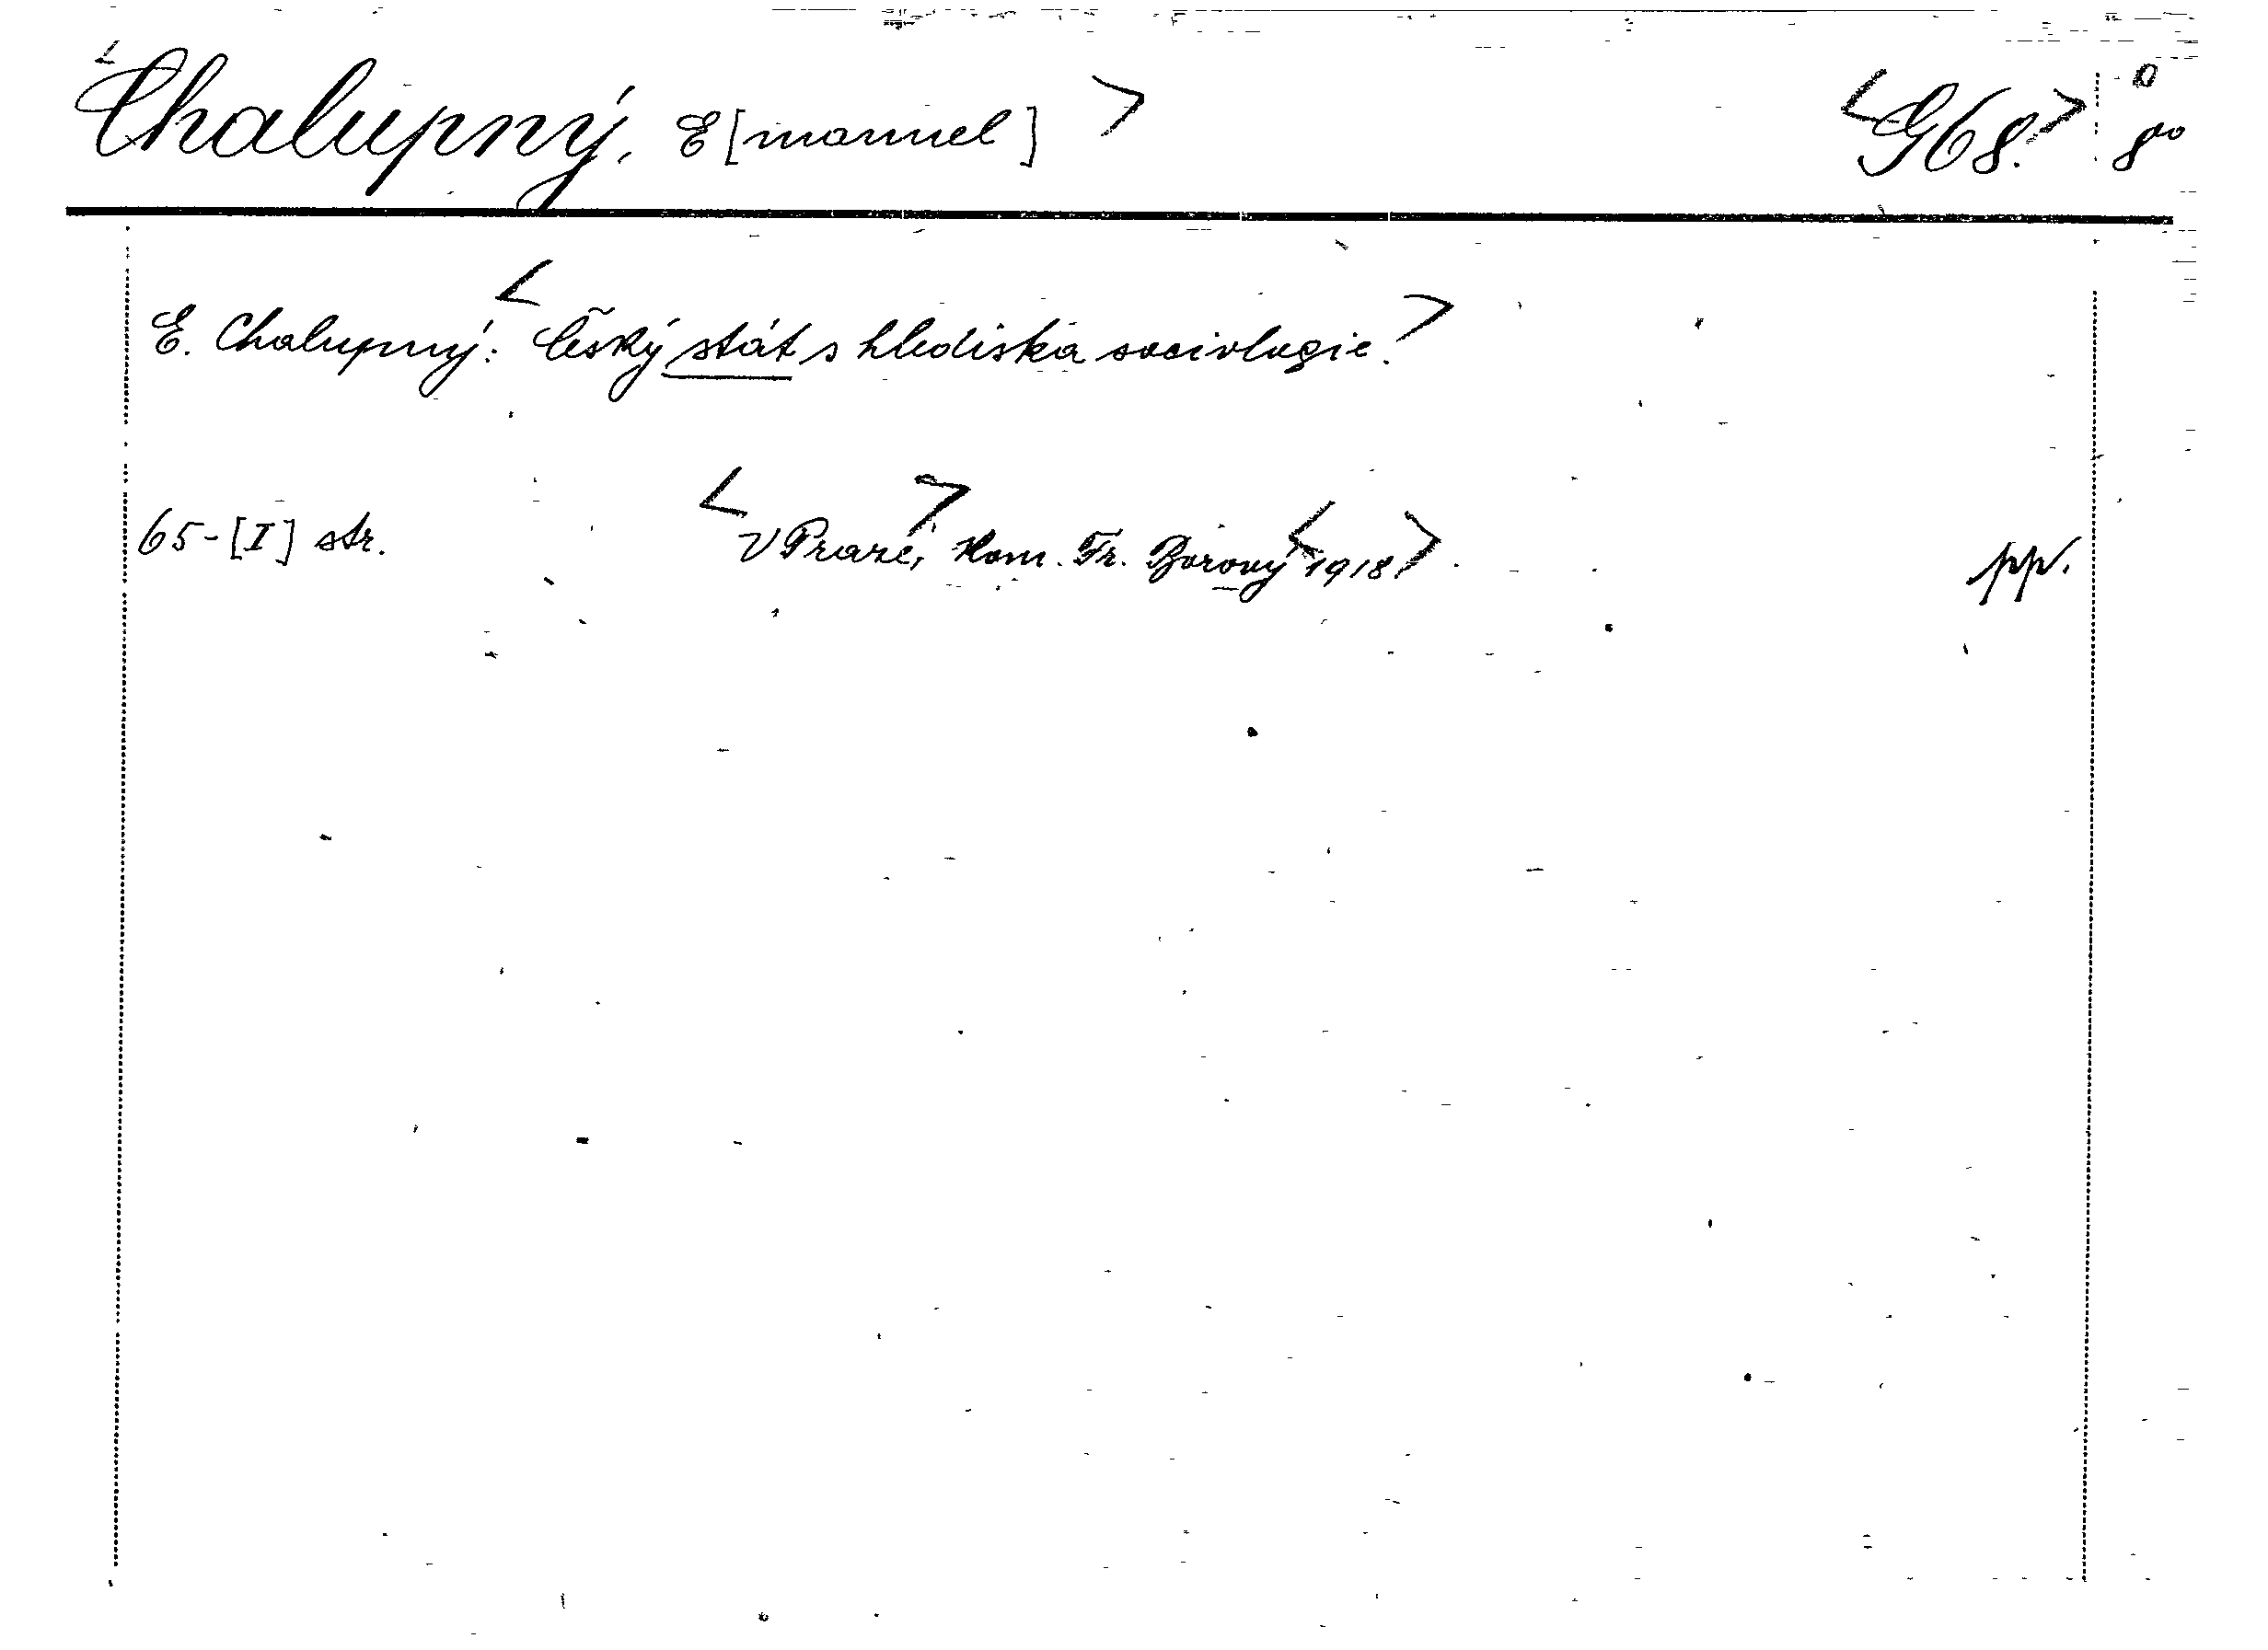 <Chalupný, E[manuel]> <G68.> 8°
E. Chalupný: <Český stát s hlediska sociologie.>
65-[I] str. <V Praze,> Kom. Fr. Borový <1918>. pp.